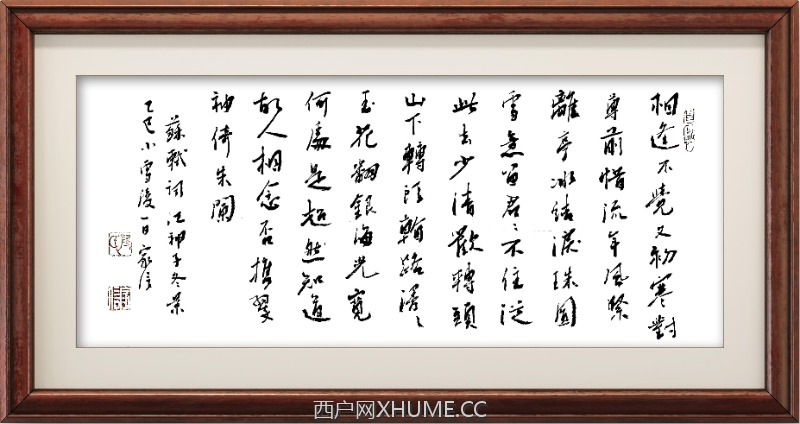 相逢不覺又初寒對
尊前惜流年風緊
離亭冰結淚珠圓
雪意留君〻不住從
此去少清歡轉頭
山下轉頭看路漫〻
玉花翻銀海光寬
何處是超然知道
故人相念否攜翠
袖倚朱闌
蘇軾詞江神子冬景
乙巳小雪後一日家信
西户网XHUME.CC